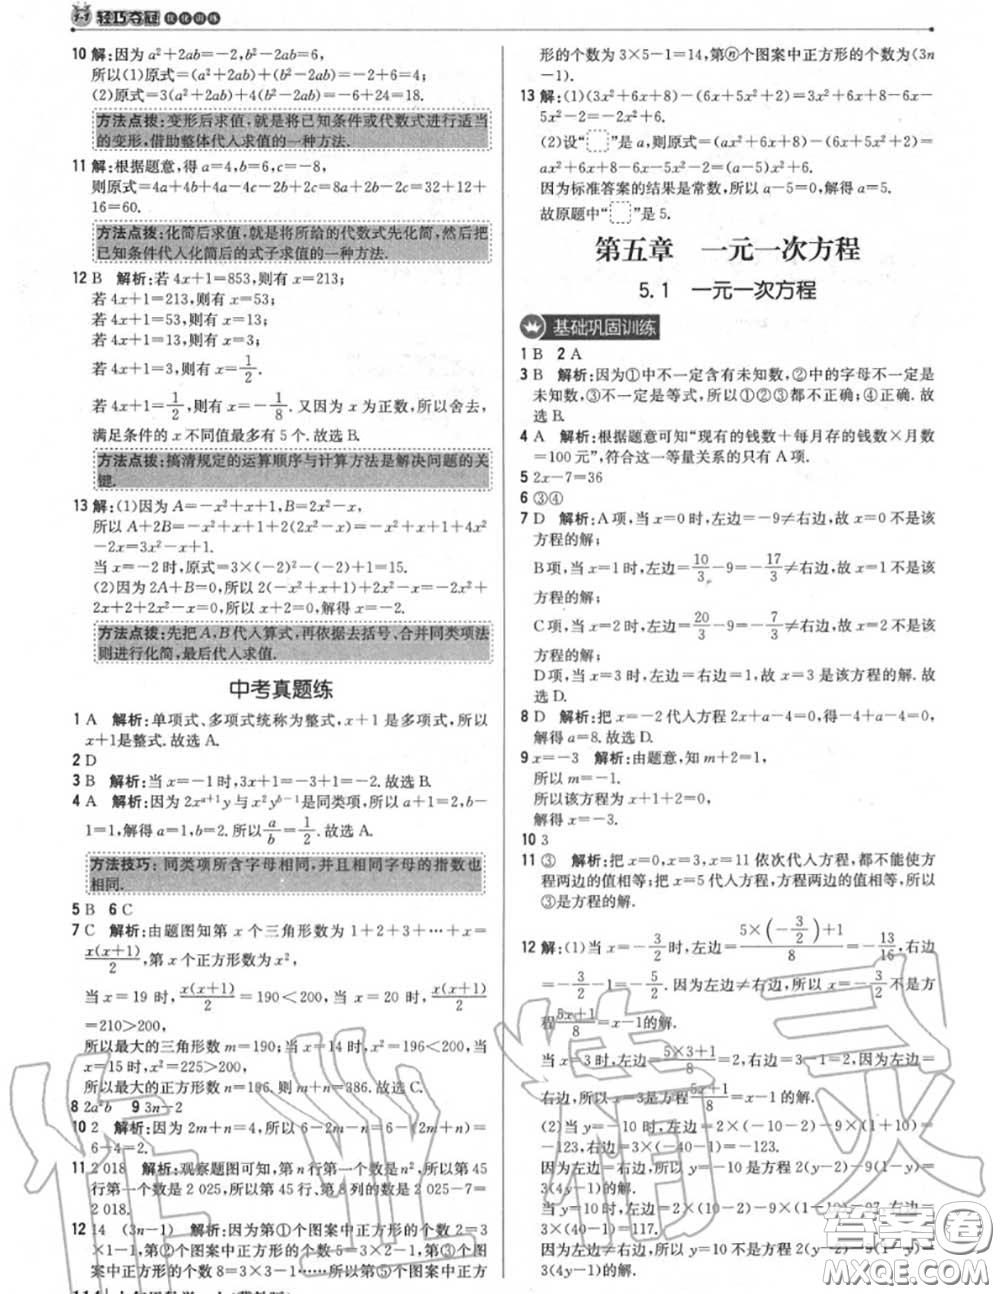 轻巧夺冠 优化训练
10 解:因为a²+2ab=-2,b²-2ab=6,
所以(1)原式=(a²+2ab)+(b²-2ab)=-2+6=4;
(2)原式=3(a²+2ab)+4(b²-2ab)=-6+24=18.
方法点拨:变形后求值,就是将已知条件或代数式进行适当
的变形,借助整体代入求值的一种方法.
11 解:根据题意,得a=4,b=6,c=-8,
则原式=4a+4b+4c-2b+2c+4a=8a+2b-2c=32+12+
16=60.
方法点拨:化简后求值,就是将所给的代数式先化简,然后把
已知条件代入化简后的式子求值的一种方法.
12 B 解析:若4x+1=853,则有x=213;
若4x+1=213,则有x=53;
若4x+1=53,则有x=13;
若4x+1=13,则有x=3;
若4x+1=3,则有x=1/2.
若4x+1=1/2,则有x=-1/8.又因为x为正数,所以舍去,
满足条件的x不同值最多有5个.故选B.
方法点拨:搞清规定的运算顺序与计算方法是解决问题的关
键.
13 解:(1)因为A=-x²+x+1,B=2x²-x,
所以A+2B=-x²+x+1+2(2x²-x)=-x²+x+1+4x²
-2x=3x²-x+1.
当x=-2时,原式=3×(-2)²-(-2)+1=15.
(2)因为2A+B=0,所以2(-x²+x+1)+2x²-x=-2x²+
2x+2+2x²-x=0,所以x+2=0,解得x=-2.
方法点拨:先把A,B代入算式,再依据去括号、合并同类项法
则进行化简,最后代入求值.
中考真题练
1 A 解析:单项式、多项式统称为整式,x+1是多项式,所以
x+1是整式.故选A.
2 D
3 B 解析:当x=-1时,3x+1=-3+1=-2.故选B.
4 A 解析:因为2xᵃ⁺¹y与x²yᵇ⁻¹是同类项,所以a+1=2,b-
1=1,解得a=1,b=2.所以a/b=1/2.故选A.
方法技巧:同类项所含字母相同,并且相同字母的指数也
相同.
5 B 6 C
7 C 解析:由题图知第x个三角形数为1+2+3+…+x=
x(x+1)/2,第x个正方形数为x²,
当x=19时,x(x+1)/2=190<200,当x=20时,x(x+1)/2
=210>200,
所以最大的三角形数m=190;当x=14时,x²=196<200,当
x=15时,x²=225>200,
所以最大的正方形数n=196.则m+n=386.故选C.
8 2a²b 9 3n-2
10 2 解析:因为2m+n=4,所以6-2m-n=6-(2m+n)=
6-4=2.
11 2 018 解析:观察题图可知,第n行第一个数是n²,所以第45
行第一个数是2 025,所以第45行、第8列的数是2 025-7=
2 018.
12 14 (3n-1) 解析:因为第①个图案中正方形的个数2=3
×1-1,第②个图案中正方形的个数5=3×2-1,第③个图
案中正方形的个数8=3×3-1……所以第⑤个图案中正方
形的个数为3×5-1=14,第ⓝ个图案中正方形的个数为(3n
-1).
13 解:(1)(3x²+6x+8)-(6x+5x²+2)=3x²+6x+8-6x-
5x²-2=-2x²+6.
(2)设“□”是a,则原式=(ax²+6x+8)-(6x+5x²+2)=
ax²+6x+8-6x-5x²-2=(a-5)x²+6.
因为标准答案的结果是常数,所以a-5=0,解得a=5.
故原题中“□”是5.
第五章 一元一次方程
5.1 一元一次方程
基础巩固训练
1 B 2 A
3 B 解析:因为①中不一定含有未知数,②中的字母不一定是
未知数,③不一定是等式,所以①②③都不正确;④正确.故
选B.
4 A 解析:根据题意可知“现有的钱数+每月存的钱数×月数
=100元”,符合这一等量关系的只有A项.
5 2x-7=36
6 ③④
7 D 解析:A项,当x=0时,左边=-9≠右边,故x=0不是该
方程的解;
B项,当x=1时,左边=10/3-9=-17/3≠右边,故x=1不是该
方程的解;
C项,当x=2时,左边=20/3-9=-7/3≠右边,故x=2不是该
方程的解;
D项,当x=3时,左边=右边,故x=3是该方程的解.故
选D.
8 D 解析:把x=-2代入方程2x+a-4=0,得-4+a-4=0,
解得a=8.故选D.
9 x=-3 解析:由题意,知m+2=1,
所以m=-1.
所以该方程为x+1+2=0,
解得x=-3.
10 3
11 ③ 解析:把x=0,x=3,x=11依次代入方程,都不能使方
程两边的值相等;把x=5代入方程,方程两边的值相等,所以
③是方程的解.
12 解:(1)当x=-3/2时,左边=(5×(-3/2)+1)/8=-13/16,右边
=-3/2-1=-5/2,左边≠右边,所以x=-3/2不是方
程(5x+1)/8=x-1的解.
当x=3时,左边=(5×3+1)/8=2,右边=3-1=2,左边=
右边,所以x=3是方程(5x+1)/8=x-1的解.
(2)当y=-10时,左边=2×(-10-2)-9×(1+10)=
-123,右边=3×(-40-1)=-123.
因为左边=右边,所以y=-10是方程2(y-2)-9(1-y)=
3(4y-1)的解.
3×(40-1)=117.
因为左边≠右边,所以y=10不是方程2(y-2)-9(1-y)=
3(4y-1)的解.
作业精灵
答案圈
MXQE.COM